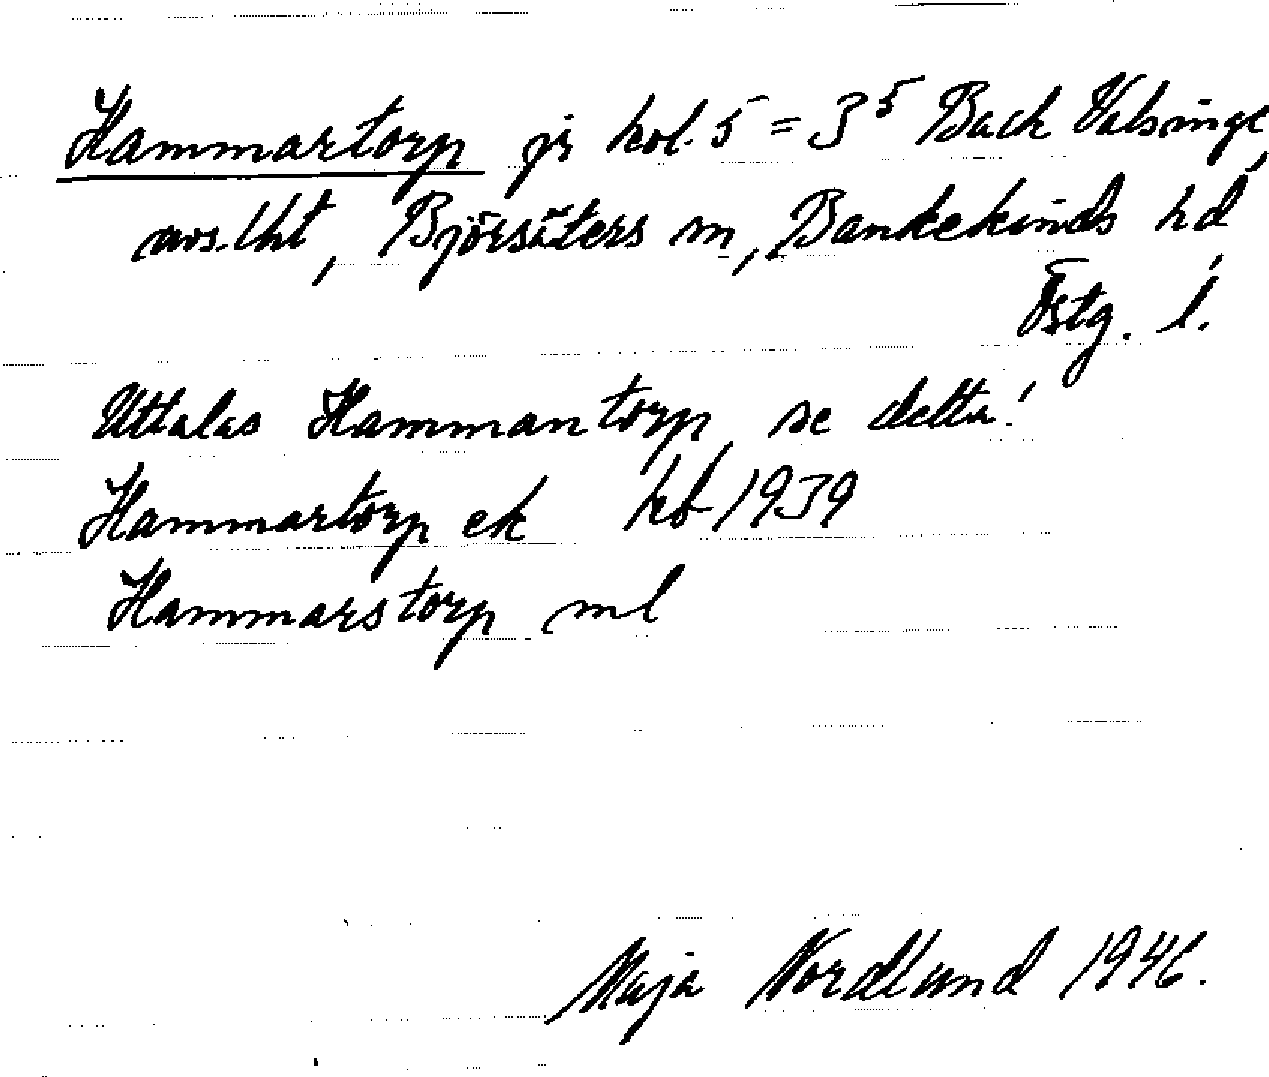 Hammartorp jr kol. 5 = J5 Back Valsinge,
avs. lht, Björsäters sn, Bankekinds hd,
Östg. l.
Uttalas Hammantorp, se detta!
Hammartorp ek kb 1939
Hammarstorp ml
Maja Nordlund 1946.